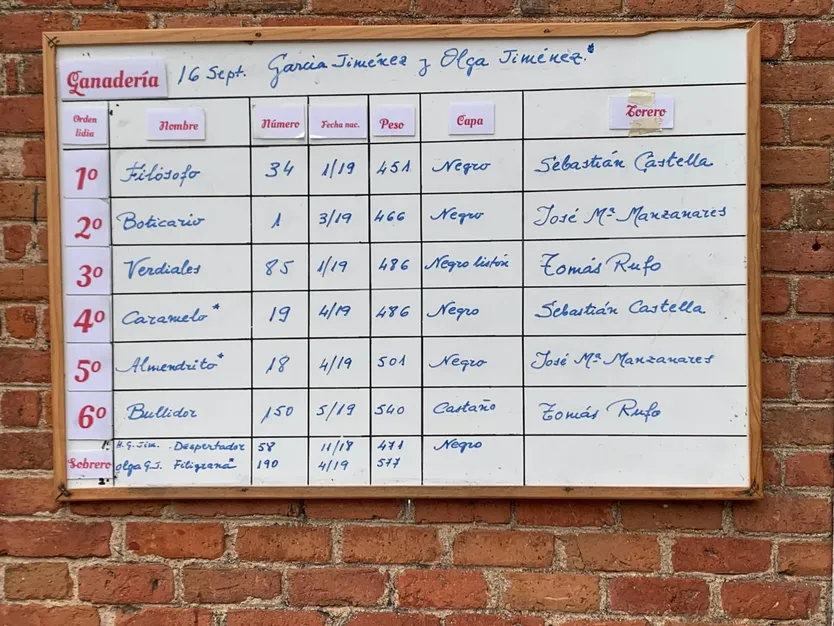 Ganadería 16 Sept. Garcia Jiménez y Olga Jiménez.*
Orden lidia Nombre Número Fecha nac. Peso Capa Torero
1º Filósofo 34 1/19 451 Negro Sebastián Castella
2º Boticario 1 3/19 466 Negro José Mª Manzanares
3º Verdiales 85 1/19 486 Negro listón Tomás Rufo
4º Caramelo* 19 4/19 486 Negro Sebastián Castella
5º Almendrito* 18 4/19 501 Negro José Mª Manzanares
6º Bullidor 150 5/19 540 Castaño Tomás Rufo
Sobrero 1º H.G.Jim. Despertador 58 11/18 471 Negro
2º Olga G.J. Filigrana* 190 4/19 577